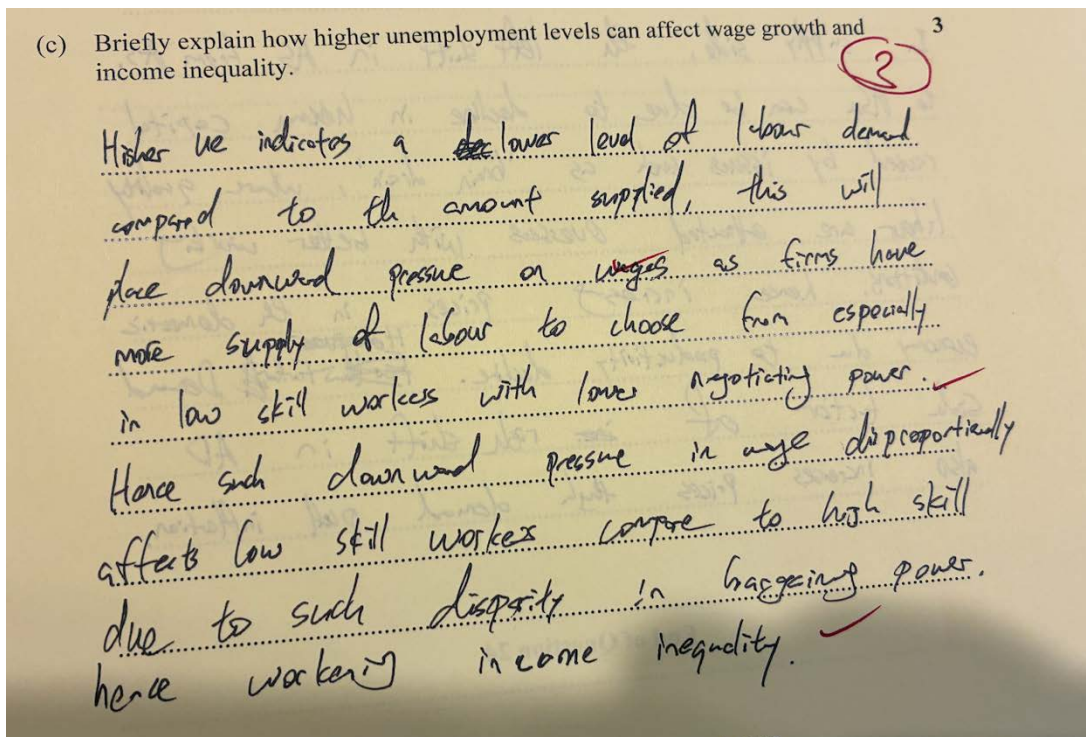 (c) Briefly explain how higher unemployment levels can affect wage growth and 3
income inequality.
Higher ue indicates a lower level of labour demand
compared to th amount supplied, this will
place downward pressue on wages as firms have
more supply of labour to choose from especially
in low skill workers with lower negotiating power.
Hence such downward pressue in wage disproportionally
affects low skill workers compare to high skill
due to such disparity in bargaining power.
hence workening income inequality.